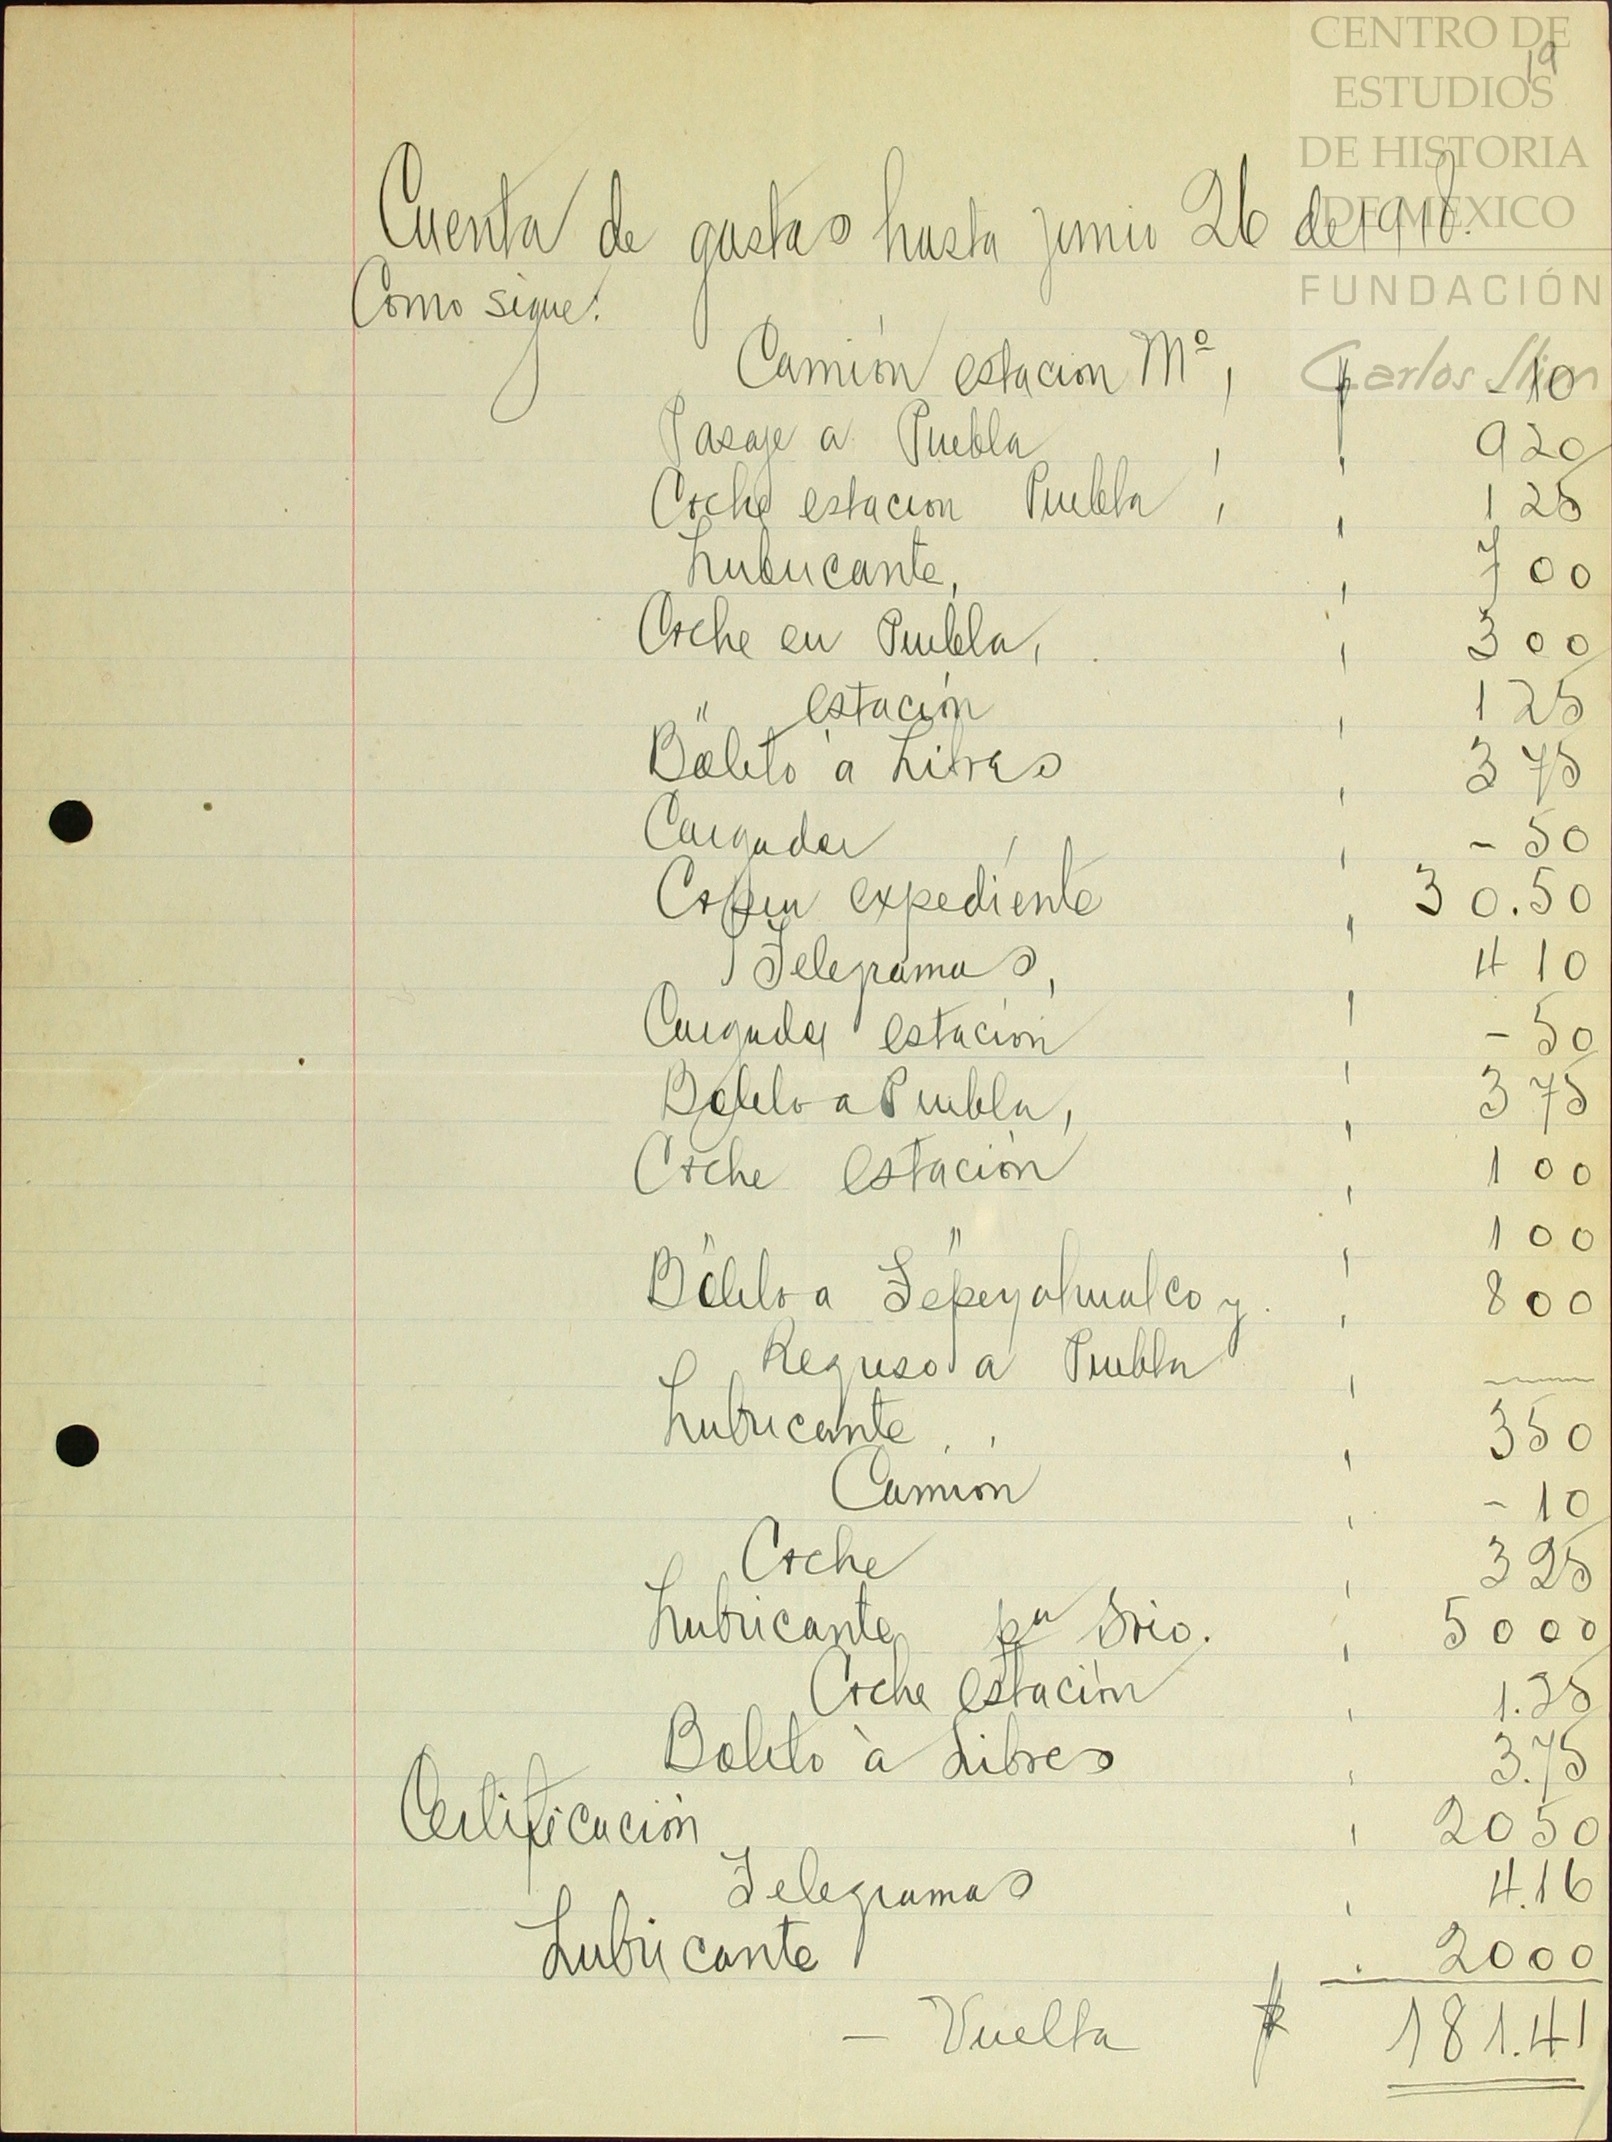 CENTRO DE
ESTUDIOS
DE HISTORIA
DE MEXICO
FUNDACIÓN
Carlos Slim
19
Cuenta de gastos hasta junio 26 de 1918.
Como sigue:
Camión estacion Mº, $ - 10
Pasaje a Puebla , , 9 20
Coche estacion Puebla , , 1 25
Lubricante, , 7 00
Coche en Puebla, , 3 00
" estación , 1 25
Boleto a Libres , 3 75
Cargador , , - 50
Copia expediente , 30.50
Telegramas, , 4 10
Cargador estación , - 50
Boleto a Puebla, , 3 75
Coche estación , 1 00
" " , 1 00
Boleto a Tepeyahualco y , 8 00
Regreso a Puebla ,
Lubricante , , , 3 50
Camión , - 10
Coche , 3 25
Lubricante pa Srio. , 50 00
Coche estación , 1.25
Boleto à Libres , 3.75
Certificación , 20 50
Telegramas , 4.16
Lubricante . 20 00
- Vuelta $ 181.41